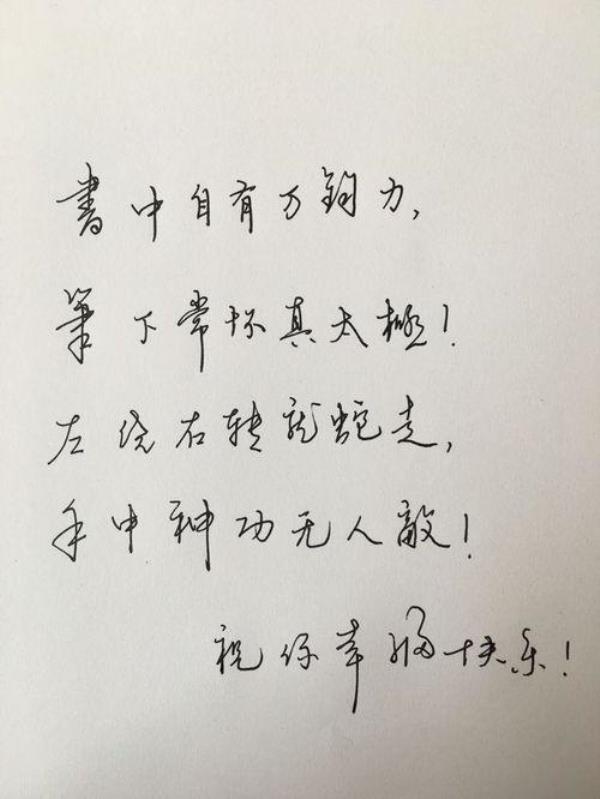 書中自有万钧力，
筆下常怀真太極！
左绕右转龙蛇走，
手中神功无人敵！
祝你幸福快乐！